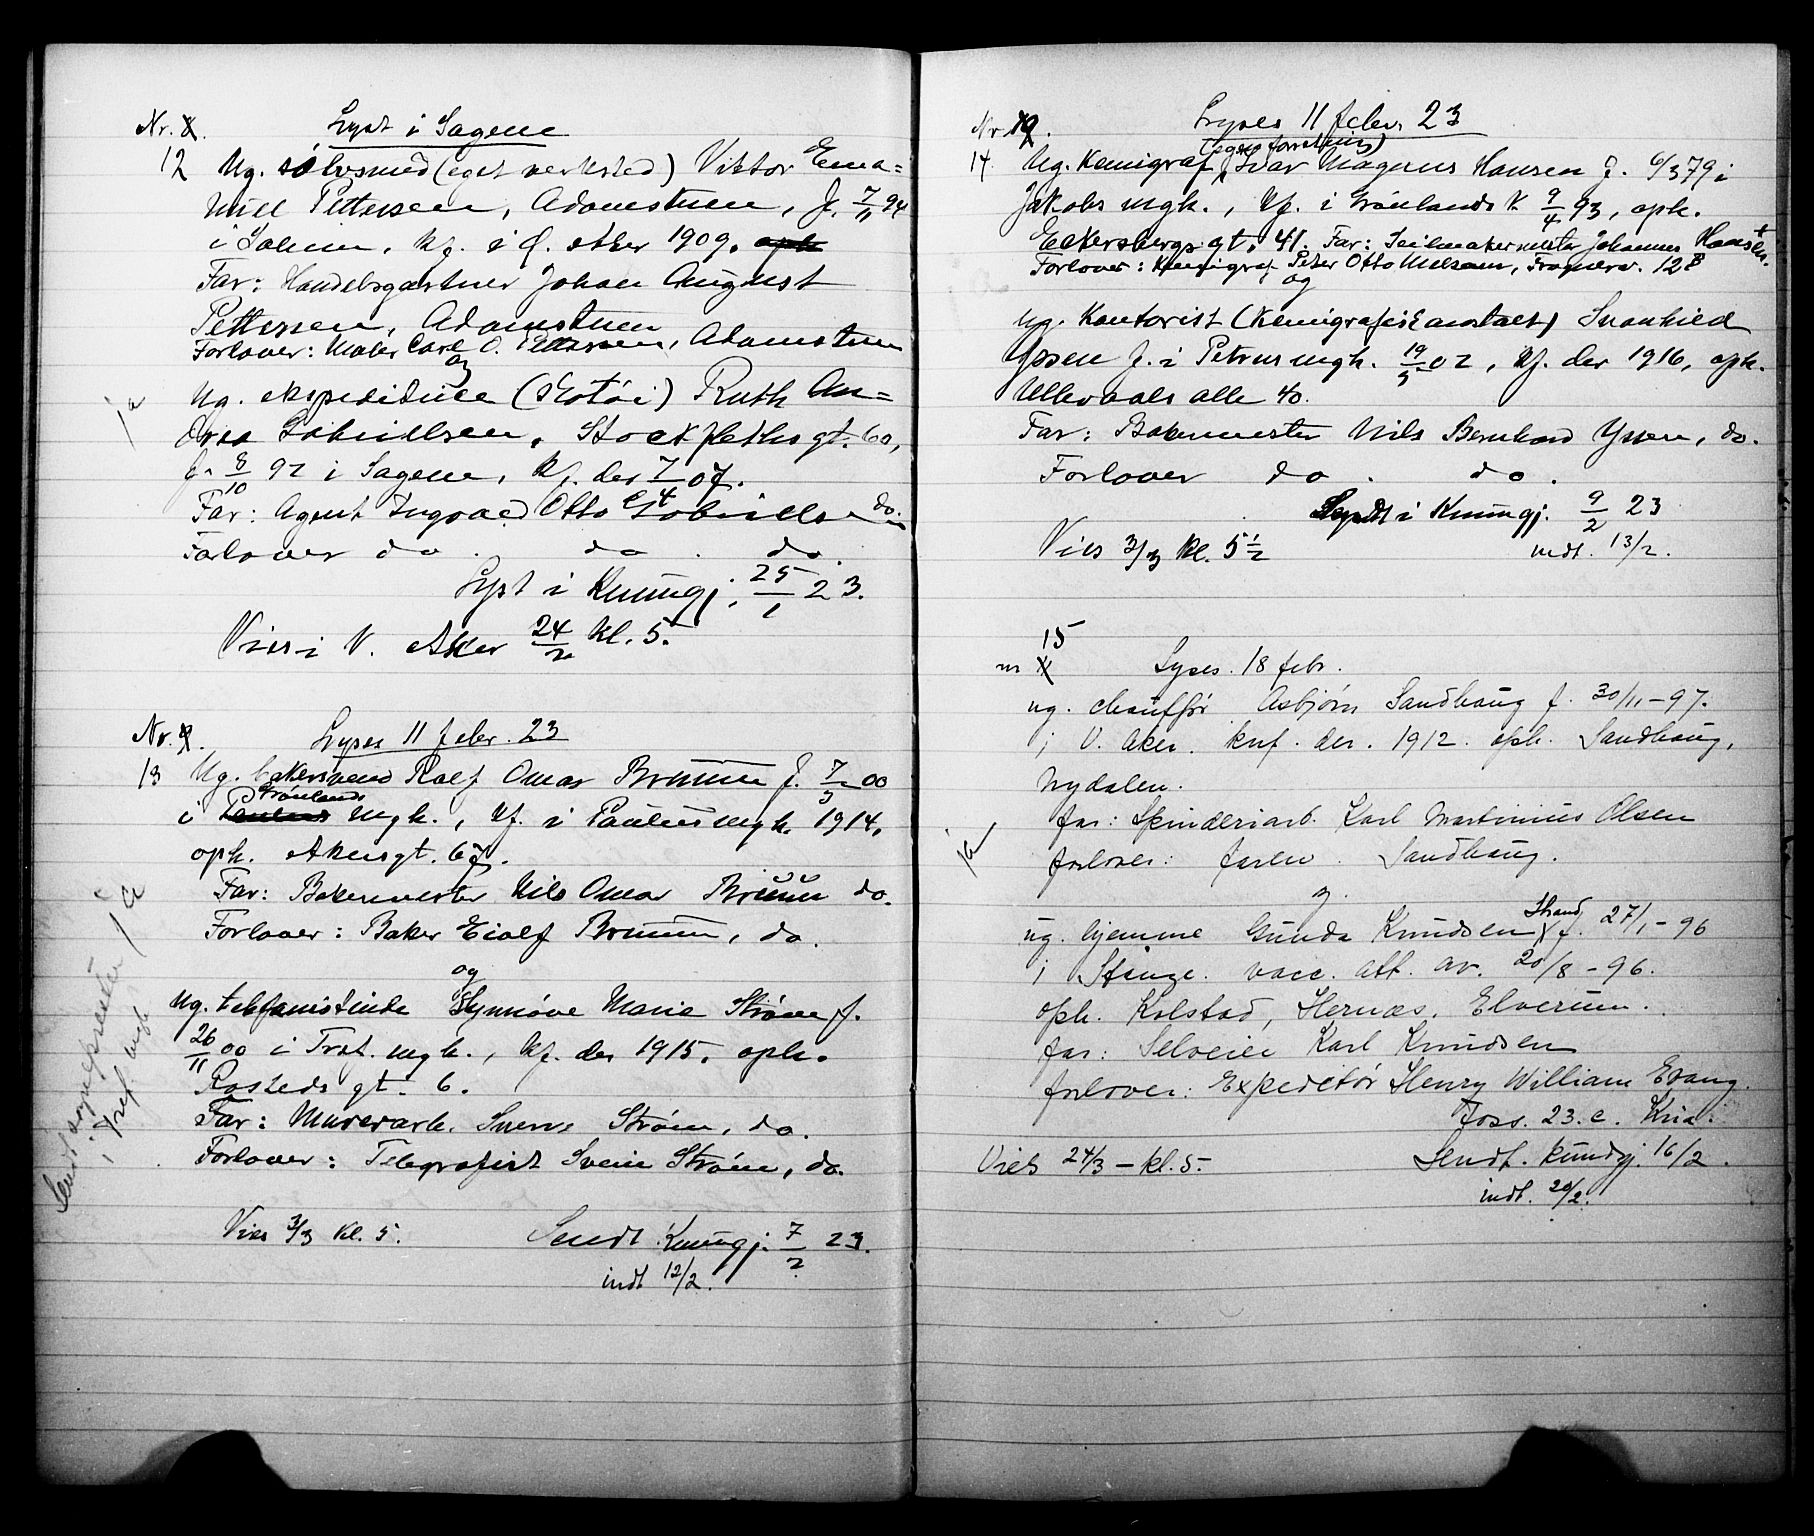 Nr. 8.
Lyst i Sagene
12 Ug. sølvsmed (eget verksted) Viktor Ema=
nuel Pettersen, Adamstuen, f. 7/11 94
i Johan., kf. i Ø. Aker 1909. oph
Far: Handelsgartner Johan August
Pettersen, Adamstuen
Forlover: Maler Carl O. Pettersen, Adamstuen
og
ja
Ug. ekspeditrice (skotøi) Ruth An=
drea Gabrielsen, Stockfleths gt. 60,
f. 8/10 92 i Sagene, kf. der 7/4 07.
Far: Agent Ingvald Otto Gabrielsen do.
Forlover do. do. do.
Lyst i Kunngj. 25/1 23.
Vies i V. Aker 24/2 kl. 5.
Nr. 9.
Lyses 11 febr. 23
13 Ug. bakersvend Rolf Omar Bruun f. 7/3 00
Grønlands
i Paulus mgh., kf. i Paulus mgh. 1914,
oph. Akersgt. 67.
Far: Bakermester Nils Omar Bruun do.
Forlover: Baker Eiolf Bruun, do.
og
Ug. telefonistinde Synnøve Marie Strøm f.
26/11 00 i Tref. mgh., kf. der 1915. oph.
Rosteds gt. 6.
Far: Murerarb. Sverre Strøm, do.
Forlover: Telegrafist Svein Strøm, do.
ja
i Tref. mgh.
Vies 3/3 kl. 5.
Sendt Kunngj. 7/2 23.
indt 12/2.
Nr. 10.
Lyses 11 febr. 23
(egen forretning)
14. Ug. Kemigraf Ivar Magnus Hansen f. 6/3 79 i
Jakobs mgh., kf. i Grønlands k. 9/4 93, oph.
Eckersbergs gt. 41. Far: Seilmakermester Johannes Hansen.
Forlover: Kemigraf Peter Otto Nielsen, Fragnerv. 12 B
og
Ug. Kontorist (Kemigrafisk anstalt) Svanhild
Yssen f. i Petrus mgh. 19/5 02, kf. der 1916, oph.
Ullevaals alle 40.
Far: Bakermester Nils Bernhard Yssen, do.
Forlover do. do.
Sendt i Kunngj. 9/2 23
Vies 3/3 kl. 5 1/2
indt. 13/2.
15
nr
Lyses. 18 febr.
ug. chauffør Asbjørn Sandhaug f. 30/11-97.
i V. Aker. knf. der. 1912. oph. Sandhaug,
Nydalen.
far: Spinderiarb. Karl Martinius Olsen
ja
forlover: faren. Sandhaug.
og
Strand
ug. hjemme Gunda Knudsen f. 27/1-96
i Stange. vacc. att. av. 20/8-96.
oph. Kolstad, Hernæs, Elverum.
far: Selveier Karl Knudsen
forlover: Expeditør Henry William Evang.
Foss. 23. c. Kria.
Vies 24/3 - kl. 5.
Sendt. kundgj. 16/2.
indt. 20/2.